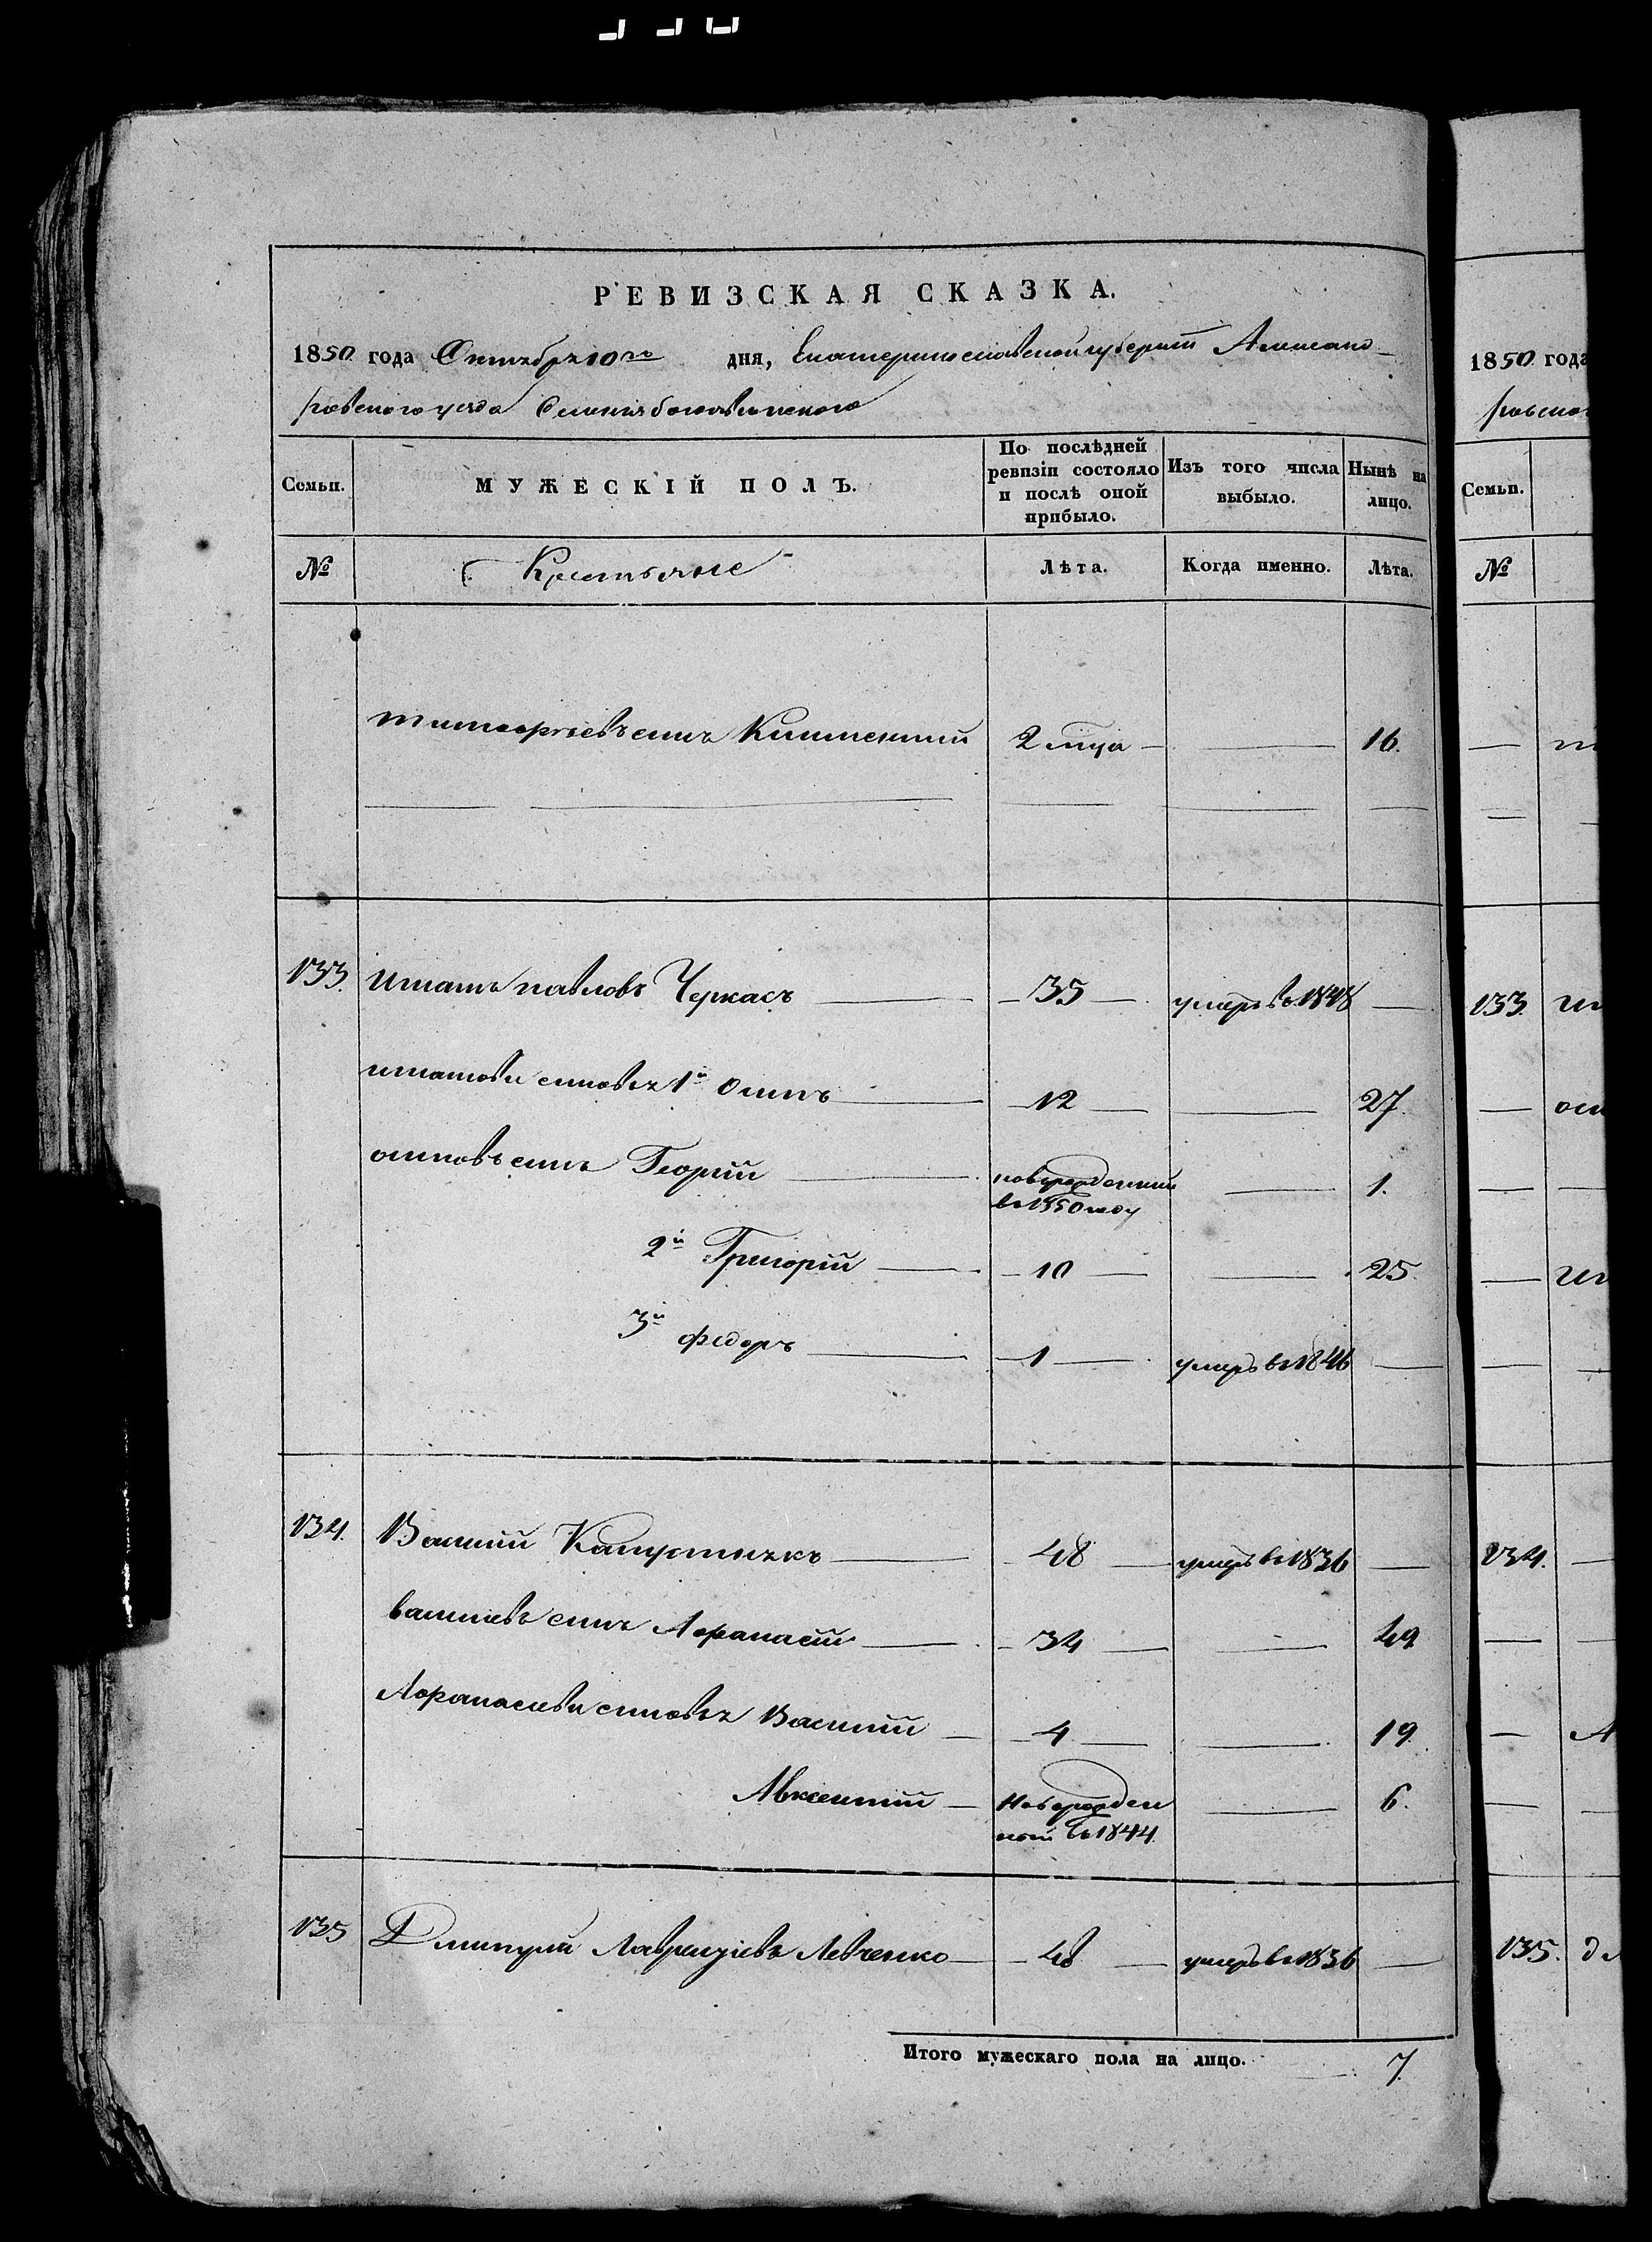 РЕВИЗСКАЯ СКАЗКА.
1850 года Октября 10го дня, Екатеринославской губернии Александ-
ровского уезда Селения
Семьи. МУЖЕСКІЙ ПОЛЪ. По послѣдней ревизіи состояло и послѣ оной прибыло. Изъ того числа выбыло. Нынѣ на лицо.
№ Крестьяне Лѣта. Когда именно. Лѣта.
сынъ 2 мца — — 16.
133. Игнатъ павловъ Черкасъ — 35 — умеръ в 1848 —
игнатовы сыновья 1й Осипъ — 12 — — 27.
осиповъ сынъ Георгій — новорожденный в 1850 году — 1.
2й Григорій — 10 — — 25.
3й федоръ — 1 — умеръ в 1846 —
134. Василий Капустякъ — 48 — умеръ в 1836 —
васильевъ сынъ Афанасій — 34 — — 49
Афанасиевы сыновья Василий — 4 — — 19.
Авксентий — Новорожденный в 1844. — 6.
135 Дмитрий Лаврентіевъ Левченко — 48 — умеръ в 1836 —
Итого мужескаго пола на лицо. 7.
1850 года
Семьи.
№
133.
134.
135.